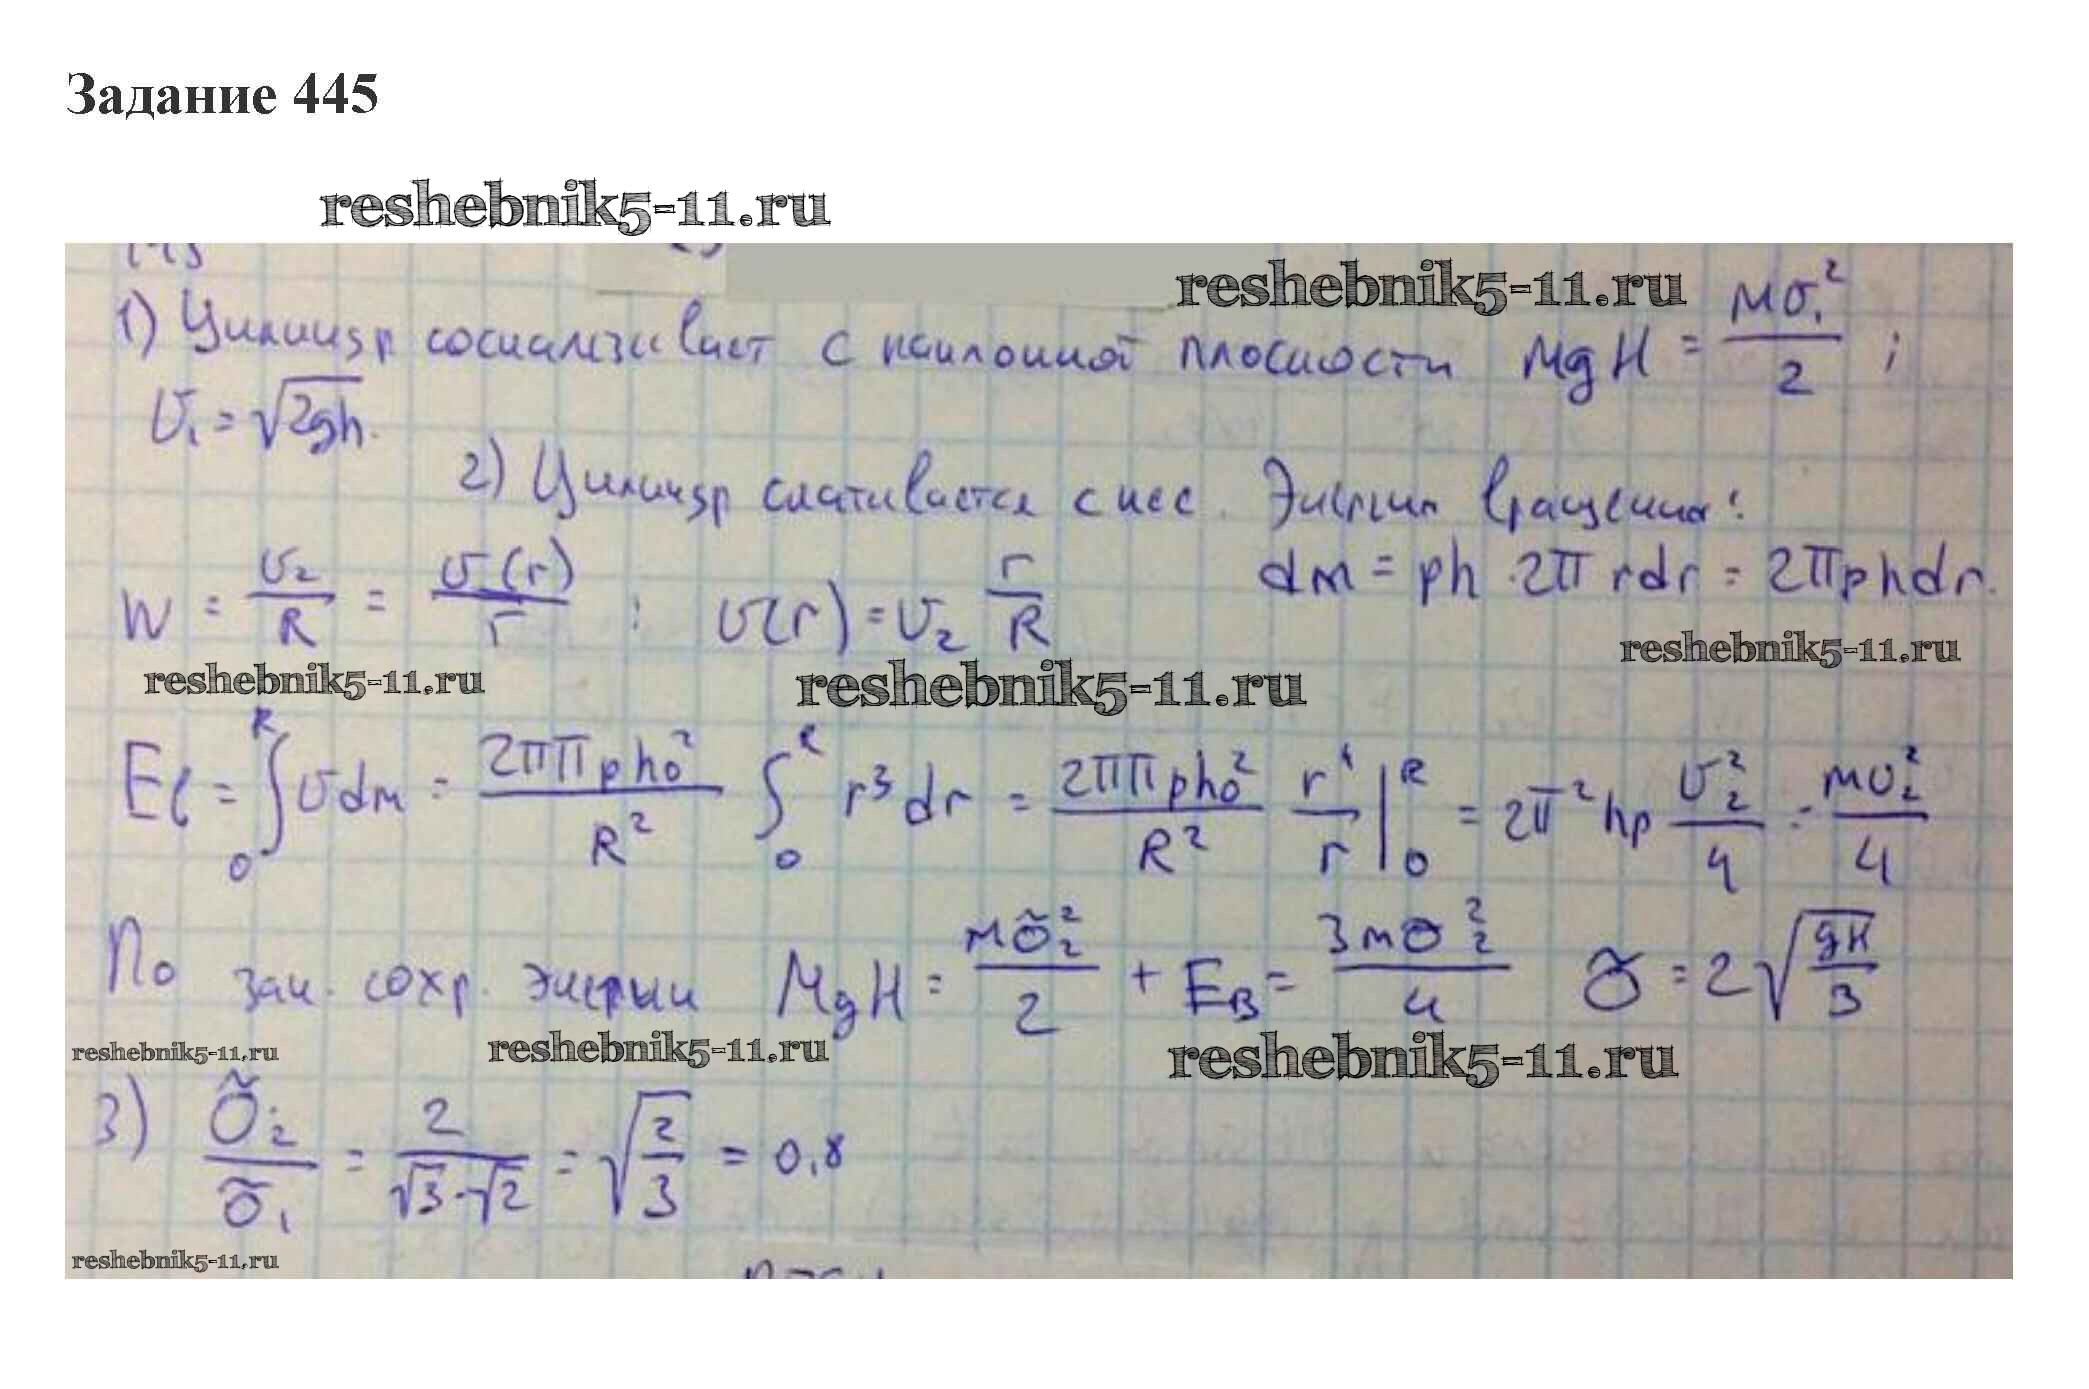 Задание 445
reshebnik5-11.ru
reshebnik5-11.ru
1) Цилиндр соскальзывает с наклонной плоскости MgH = mv₁²/2 ;
v₁ = √2gh.
2) Цилиндр скатывается с нее. Энергия вращения:
W = v₂/R = v(r)/r ; v(r) = v₂ r/R dm = ρh · 2π rdr = 2πρhdr.
reshebnik5-11.ru reshebnik5-11.ru reshebnik5-11.ru
= ∫₀ᴿ v dm = 2ππρhv²/R² ∫₀ᴿ r³dr = 2ππρhv²/R² r⁴/r |₀ᴿ = 2π²hρ v₂²/4 = mv₂²/4
По зак. сохр. энергии MgH = mṽ₂²/2 + Eв = 3mv₂²/4 ṽ = 2√gH/3
reshebnik5-11.ru reshebnik5-11.ru reshebnik5-11.ru
3) ṽ₂/ṽ₁ = 2/√3·√2 = √2/3 = 0,8
reshebnik5-11.ru